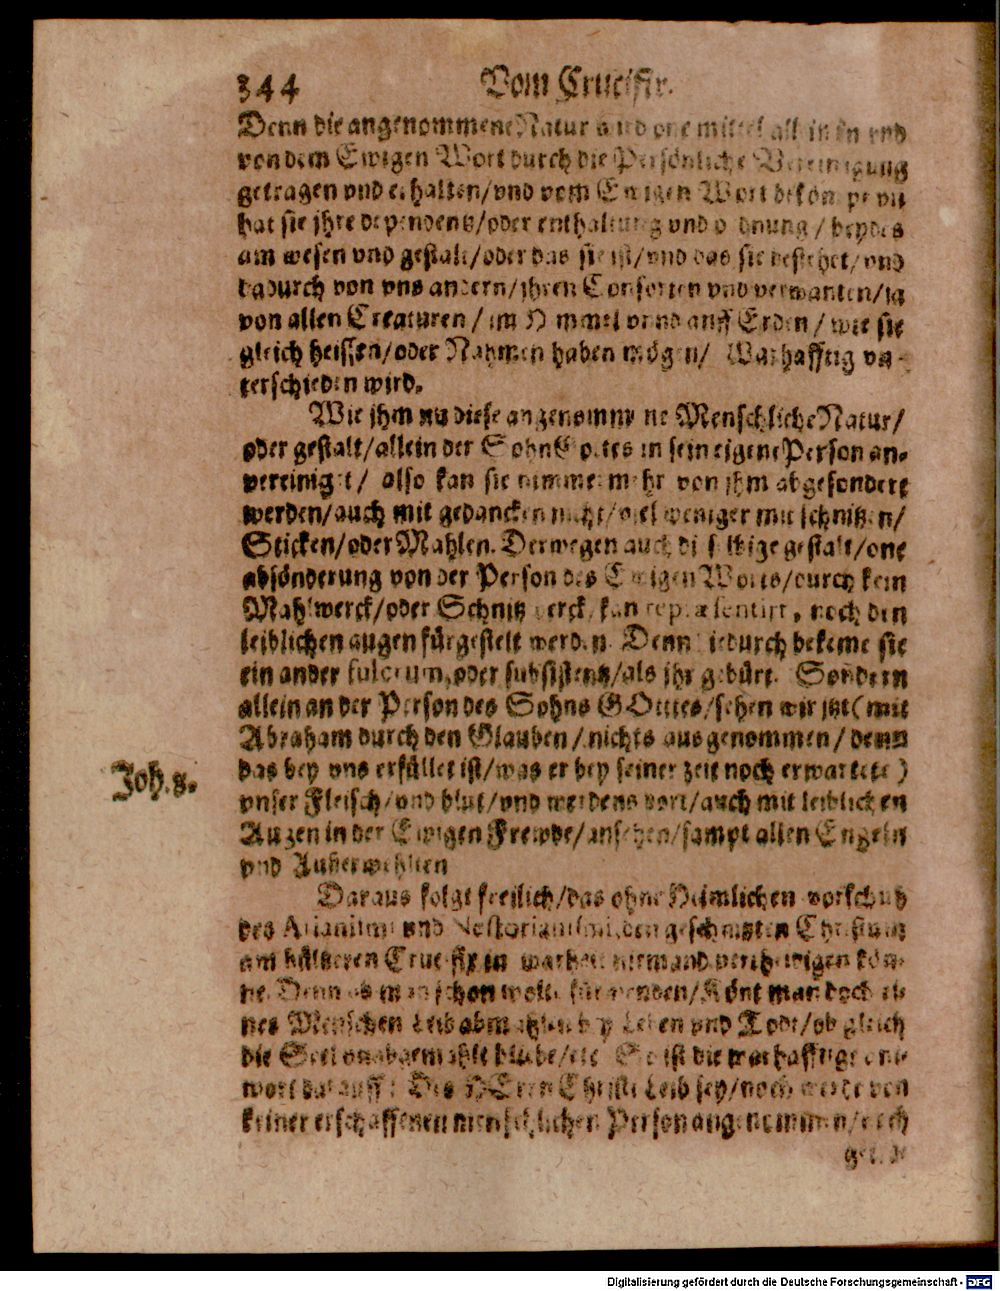 344 Vom Crucifix.
Denn die angenommene Natur wird one mittel allein in vnd
von dem Ewigen Wort durch die Persönliche Vereinigung
getragen vnd erhalten/vnd vom Ewigen Wort vnd
hat sie jhre dependentz/oder enthaltung vnd ordnung/beydes
am wesen vnd gestalt/oder das sie ist/vnd das sie bestehet/vnd
dadurch von vns andern/jhren Consorten vnd verwanten/ja
von allen Creaturen/im Himmel vnnd auff Erden/wie sie
gleich heissen/oder Nahmen haben mögen/ Warhafftig vn-
terschieden wird.
Wie jhm nu diese angenommene Menschliche Natur/
oder gestalt/allein der Sohn Gottes in sein eigene Person an-
vereiniget/ also kan sie nimmermehr von jhm abgesondert
werden/auch mit gedancken nicht/viel weniger mit schnitzen/
Sticken/oder Mahlen. Derwegen auch dieselbige gestalt/one
absönderung von der Person des Ewigen Worts/durch kein
Mahlwerck/oder Schnitzwerck/kan repræsentirt, noch den
leiblichen augen fürgestelt werden. Denn hiedurch bekeme sie
ein ander fulcrum, oder subsistentz/als jhr gebürt. Sondern
allein an der Person des Sohns GOttes/sehen wir jtzt (mit
Abraham durch den Glauben/nichts ausgenommen/denn
Joh. 8. das bey vns erfüllet ist/was er bey seiner zeit noch erwartete)
vnser Fleisch/vnd blut/vnd werdens dort/auch mit leiblichen
Augen in der Ewigen Frewde/ansehen/sampt allen Engeln
vnd Außerwehlten
Daraus folgt freilich/das ohne Heimlichen vorschub
des Arianismi vnd Nestorianismi, den geschnitzten Christum
am Crucifix in warheit niemand verteidigen kön-
ne. Denn ob man schon wolt fürwenden/Könt man doch ei-
nes Menschen Leib abmahlen bey Leben vnd Todt/ob gleich
die Seel vnabgemahlt bliebe/etc. So ist die warhafftige ant-
wort darauff: Des HErrn Christi Leib sey/noch werde von
keiner erschaffenen menschlichen Person angenommen/noch